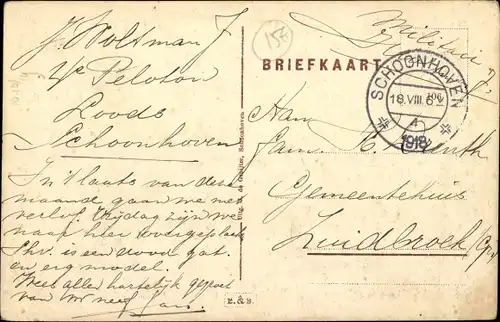 J. Woltman
4e Peloton
Loods
Schoonhoven
In 't laatst van deze
maand gaan we met
verlof. Vrijdag zijn we
naar hier overgeplaatst
Shv. is een dood gat
en erg model.
Wees allen hartelijk gegroet
van Uw neef Jan.
Schoonhoven
BRIEFKAART
Militair
SCHOONHOVEN
18.VIII.
1918
Aan
Fam. H.
Gemeentehuis
Zuidbroek
R. & B.